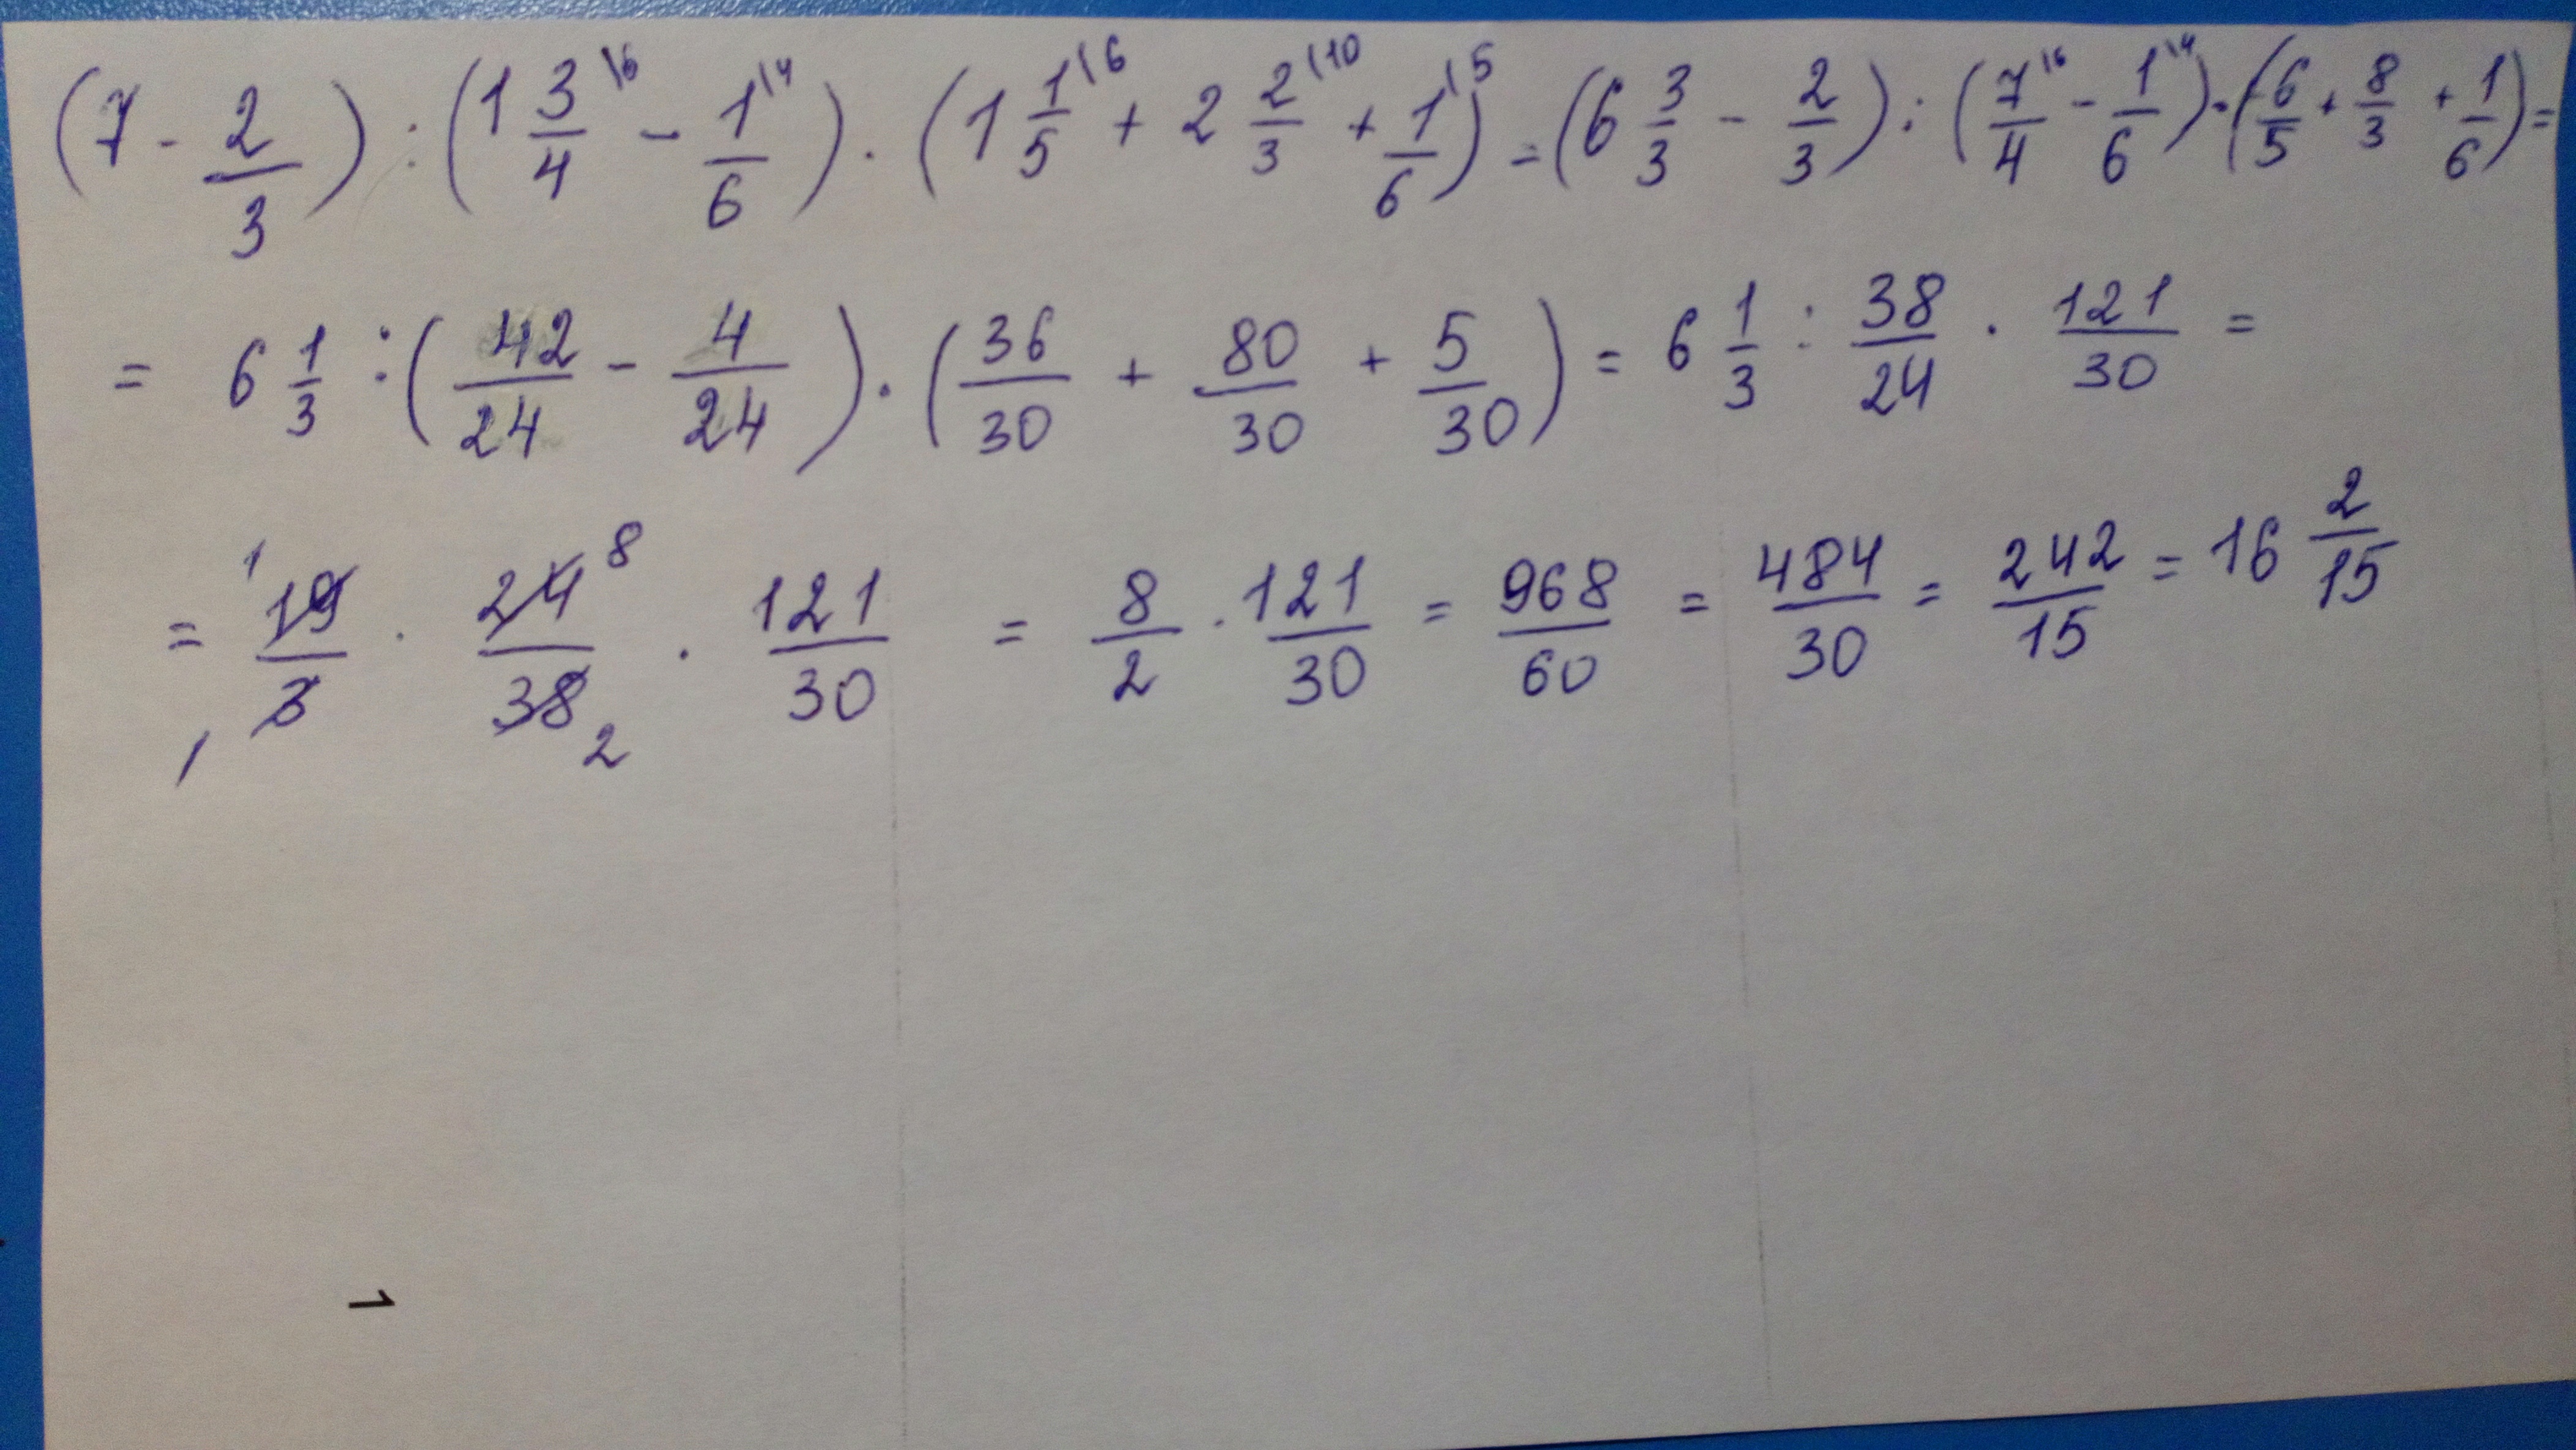 (7 - 2/3) : (1 3/4 \6 - 1/6 \4) · (1 1/5 \6 + 2 2/3 \10 + 1/6 \5) = (6 3/3 - 2/3) : (7/4 \6 - 1/6 \4) · (6/5 + 8/3 + 1/6) =
= 6 1/3 : (42/24 - 4/24) · (36/30 + 80/30 + 5/30) = 6 1/3 : 38/24 · 121/30 =
= 1 19/3 1 · 24 8/38 2 · 121/30 = 8/2 · 121/30 = 968/60 = 484/30 = 242/15 = 16 2/15
1